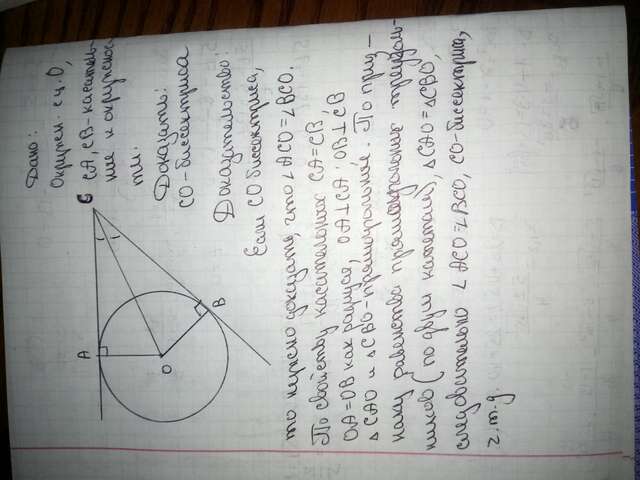 Дано:
Окружн. с ц. О,
CA, CB - касатель-
ные к окружнос-
ти.
Доказать:
CO - биссектриса
Доказательство:
Если CO биссектриса,
то нужно доказать, что ∠ACO = ∠BCO.
По свойству касательных CA = CB,
OA = OB как радиусы, OA ⊥ CA, OB ⊥ CB
△CAO и △CBO - прямоугольные. По приз-
наку равенства прямоугольных треуголь-
ников (по двум катетам), △CAO = △CBO,
следовательно ∠ACO = ∠BCO, CO - биссектриса,
ч.т.д.
C
A
B
O